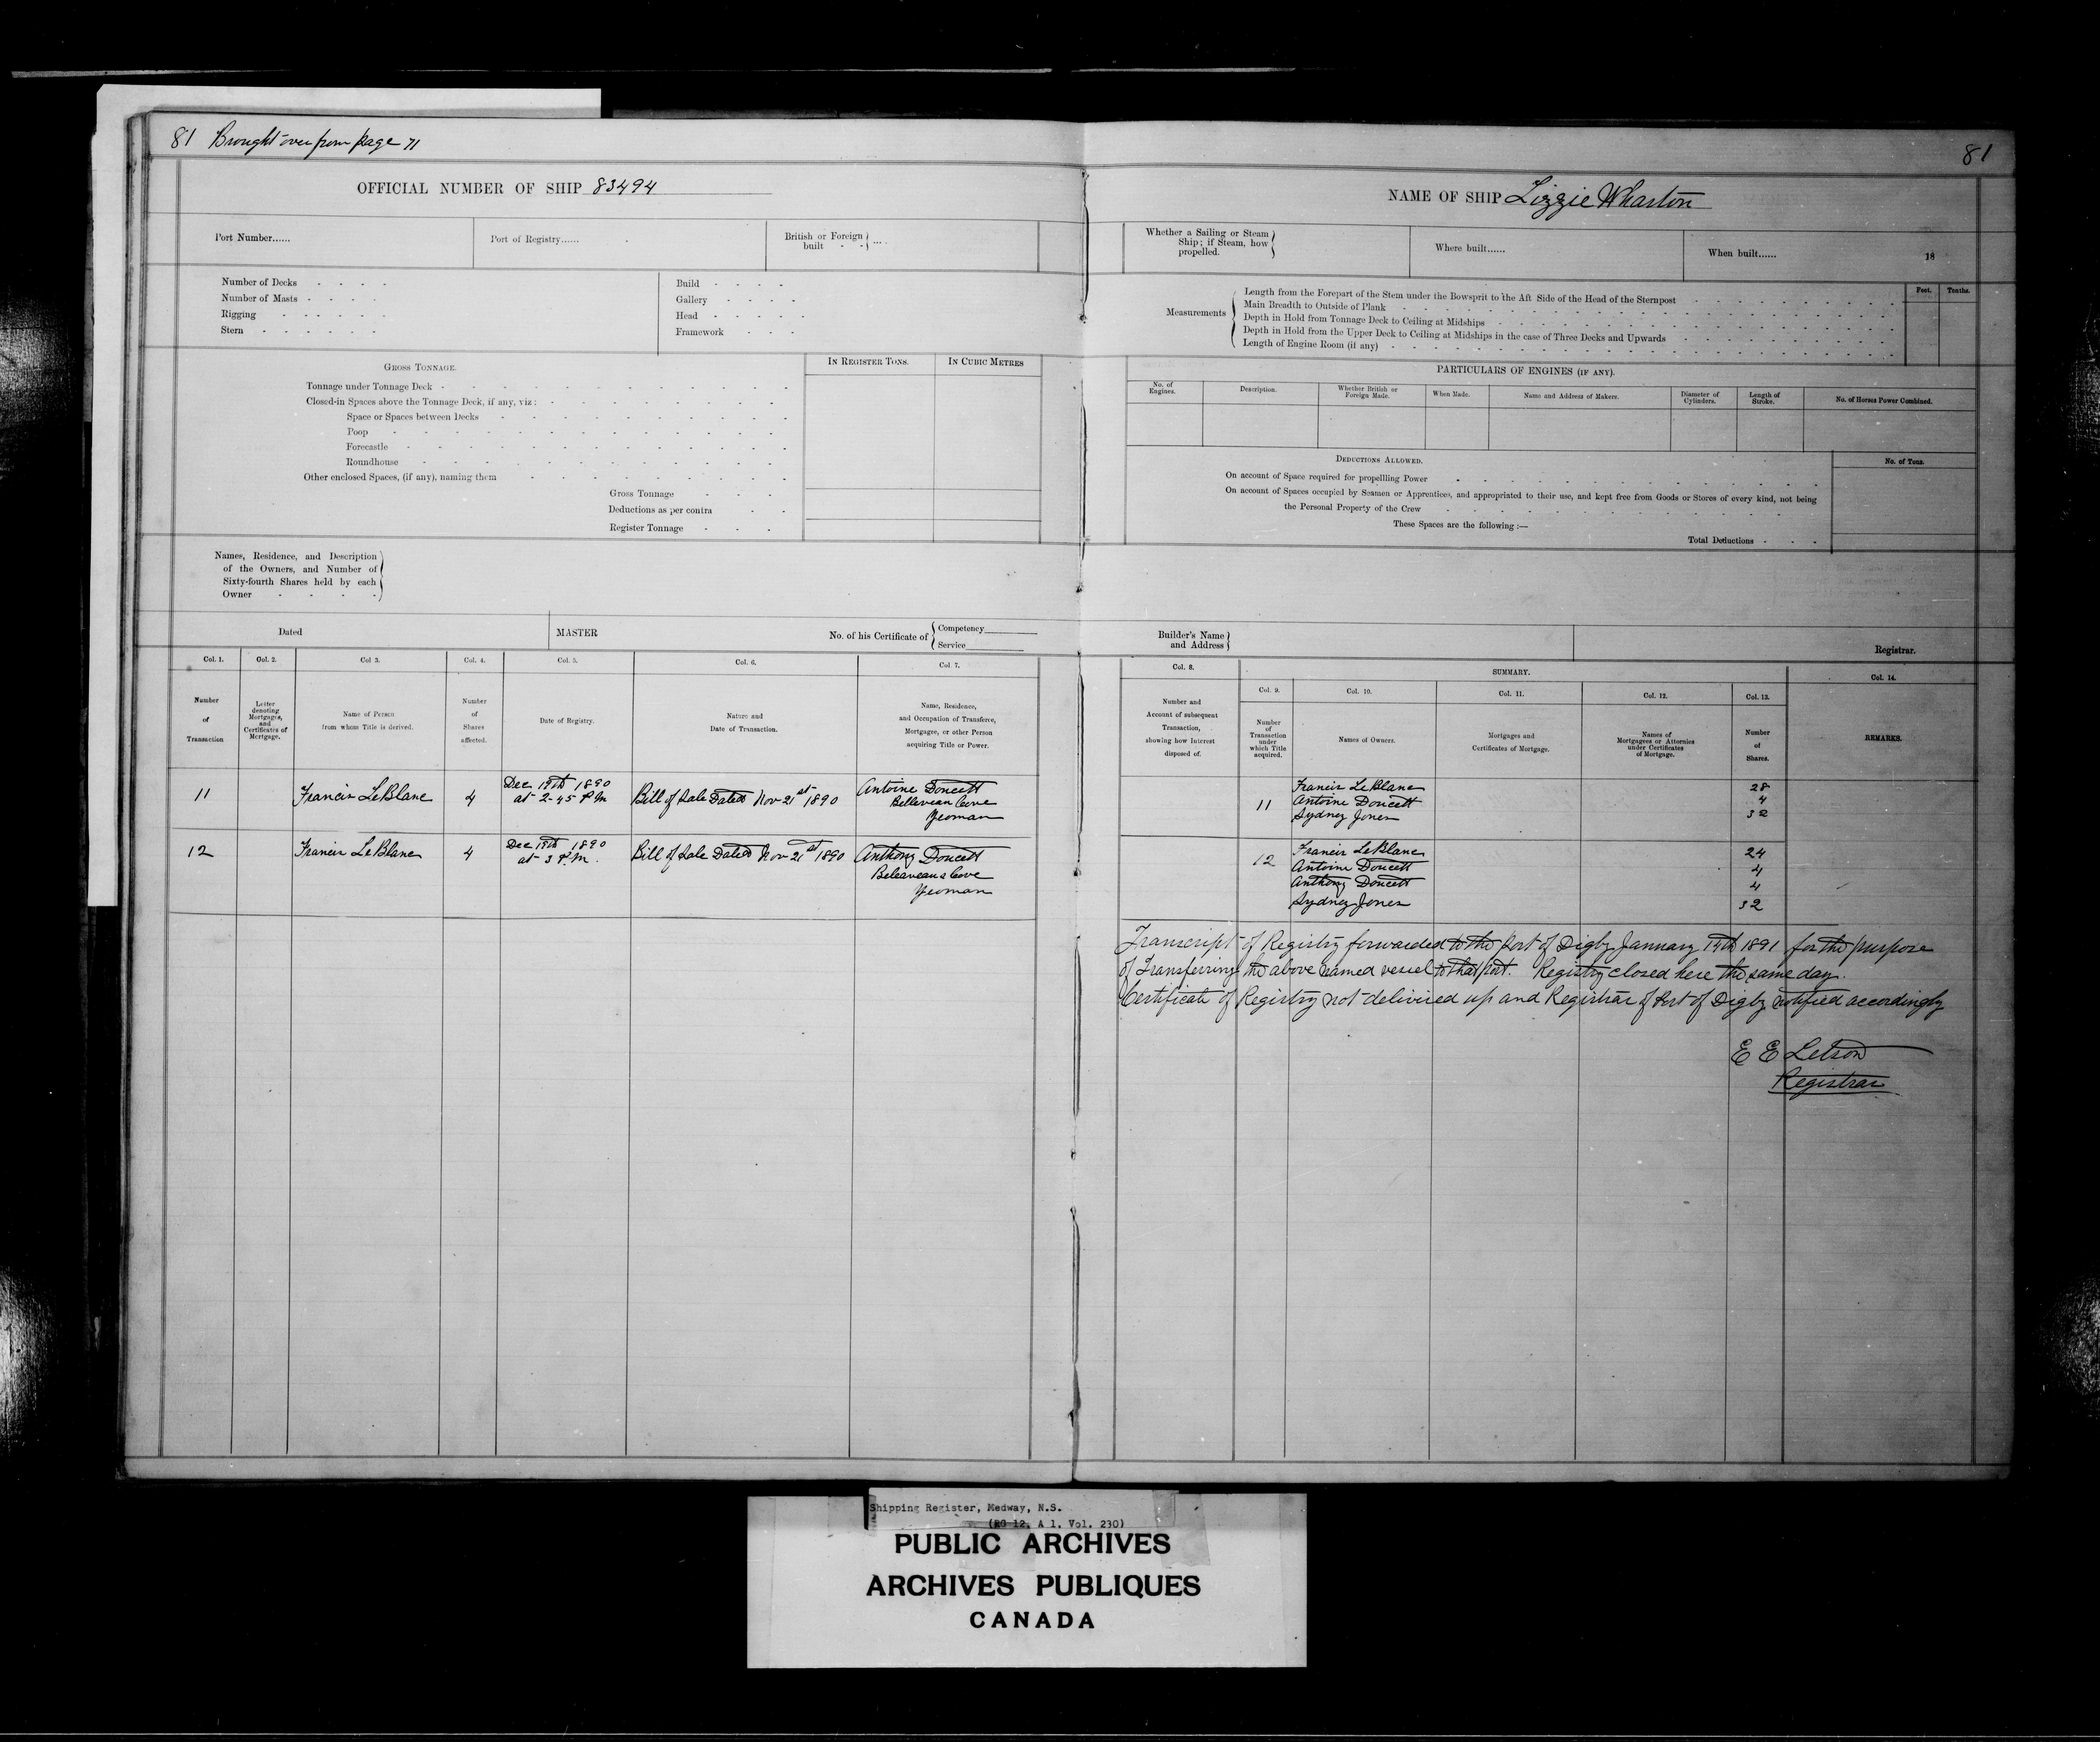 81 Brought over from page 71
81
OFFICIAL NUMBER OF SHIP 83494
NAME OF SHIP Lizzie Wharton
Port Number......
Port of Registry......
British or Foreign built - - } ....
Whether a Sailing or Steam Ship; if Steam, how propelled. }
Where built......
When built......
18
Number of Decks - - - -
Number of Masts - - - -
Rigging - - - - -
Stern - - - - -
Build - - - -
Gallery - - - -
Head - - - -
Framework - - -
Measurements
Length from the Forepart of the Stem under the Bowsprit to the Aft Side of the Head of the Sternpost
Main Breadth to Outside of Plank
Depth in Hold from Tonnage Deck to Ceiling at Midships
Depth in Hold from the Upper Deck to Ceiling at Midships in the case of Three Decks and Upwards
Length of Engine Room (if any)
Feet.
Tenths.
GROSS TONNAGE.
IN REGISTER TONS.
IN CUBIC METRES
Tonnage under Tonnage Deck
Closed-in Spaces above the Tonnage Deck, if any, viz:
Space or Spaces between Decks
Poop
Forecastle
Roundhouse
Other enclosed Spaces, (if any), naming them
Gross Tonnage
Deductions as per contra
Register Tonnage
PARTICULARS OF ENGINES (IF ANY).
No. of Engines.
Description.
Whether British or Foreign Made.
When Made.
Name and Address of Makers.
Diameter of Cylinders.
Length of Stroke.
No. of Horses Power Combined.
DEDUCTIONS ALLOWED.
No. of Tons.
On account of Space required for propellling Power
On account of Spaces occupied by Seamen or Apprentices, and appropriated to their use, and kept free from Goods or Stores of every kind, not being
the Personal Property of the Crew
These Spaces are the following :—
Total Deductions - - -
Names, Residence, and Description
of the Owners, and Number of
Sixty-fourth Shares held by each
Owner - - - -
Dated
MASTER
No. of his Certificate of { Competency
Service
Builder's Name
and Address
Registrar.
Col. 1.
Col. 2.
Col 3.
Col. 4.
Col. 5.
Col. 6.
Col 7.
Col. 8.
SUMMARY.
Col. 9.
Col. 10.
Col. 11.
Col. 12.
Col. 13.
Col. 14.
Number of Transaction
Letter denoting Mortgages, and Certificates of Mortgage.
Name of Person from whom Title is derived.
Number of Shares affected.
Date of Registry.
Nature and Date of Transaction.
Name, Residence, and Occupation of Transferee, Mortgagee, or other Person acquiring Title or Power.
Number and Account of subsequent Transaction, showing how Interest disposed of.
Number of Transaction under which Title acquired.
Names of Owners.
Mortgages and Certificates of Mortgage.
Names of Mortgagees or Attornies under Certificates of Mortgage.
Number of Shares.
REMARKS.
11
Francis LeBlanc
4
Dec 19th 1890
at 2-45 P M
Bill of Sale Dated Nov 21st 1890
Antoine Doucett
Belleveau Cove
Yeoman
11
Francis LeBlanc 28
Antoine Doucett 4
Sydney Jones 32
12
Francis LeBlanc
4
Dec 19th 1890
at 3 P.M.
Bill of Sale Dated Nov 21st 1890
Anthony Doucett
Beleaveaus Cove
Yeoman
12
Francis LeBlanc 24
Antoine Doucett 4
Anthony Doucett 4
Sydney Jones 32
Transcript of Registry forwarded to the Port of Digby January 14th 1891 for the purpose
of Transferring the above named vessel to that Port. Registry closed here the same day.
Certificate of Registry not delivired up and Registrar of Port of Digby notified accordingly
E E Letson
Registrar
Shipping Register, Medway, N.S.
(RG 12, A 1, Vol. 230)
PUBLIC ARCHIVES
ARCHIVES PUBLIQUES
CANADA